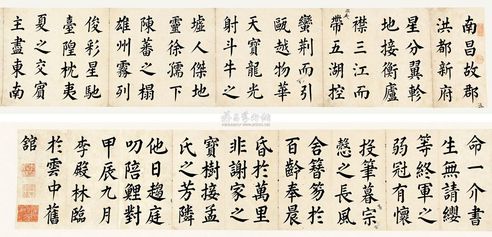 南昌故郡
洪都新府
星分翼軫
地接衡廬
襟三江而
帶五湖控
蠻荆而引
甌越物華
天寶龍光
射斗牛之
墟人傑地
靈徐孺下
陳蕃之榻
雄州霧列
俊彩星馳
臺隍枕夷
夏之交賓
主盡東南
命一介書
生無請纓
等終軍之
弱冠有懷
投筆慕宗
慤之長風
舍簪笏於
百齡奉晨
昏於萬里
非謝家之
寶樹接孟
氏之芳隣
他日趨庭
叨陪鯉對
甲辰九月
李殿林臨
於雲中舊
舘